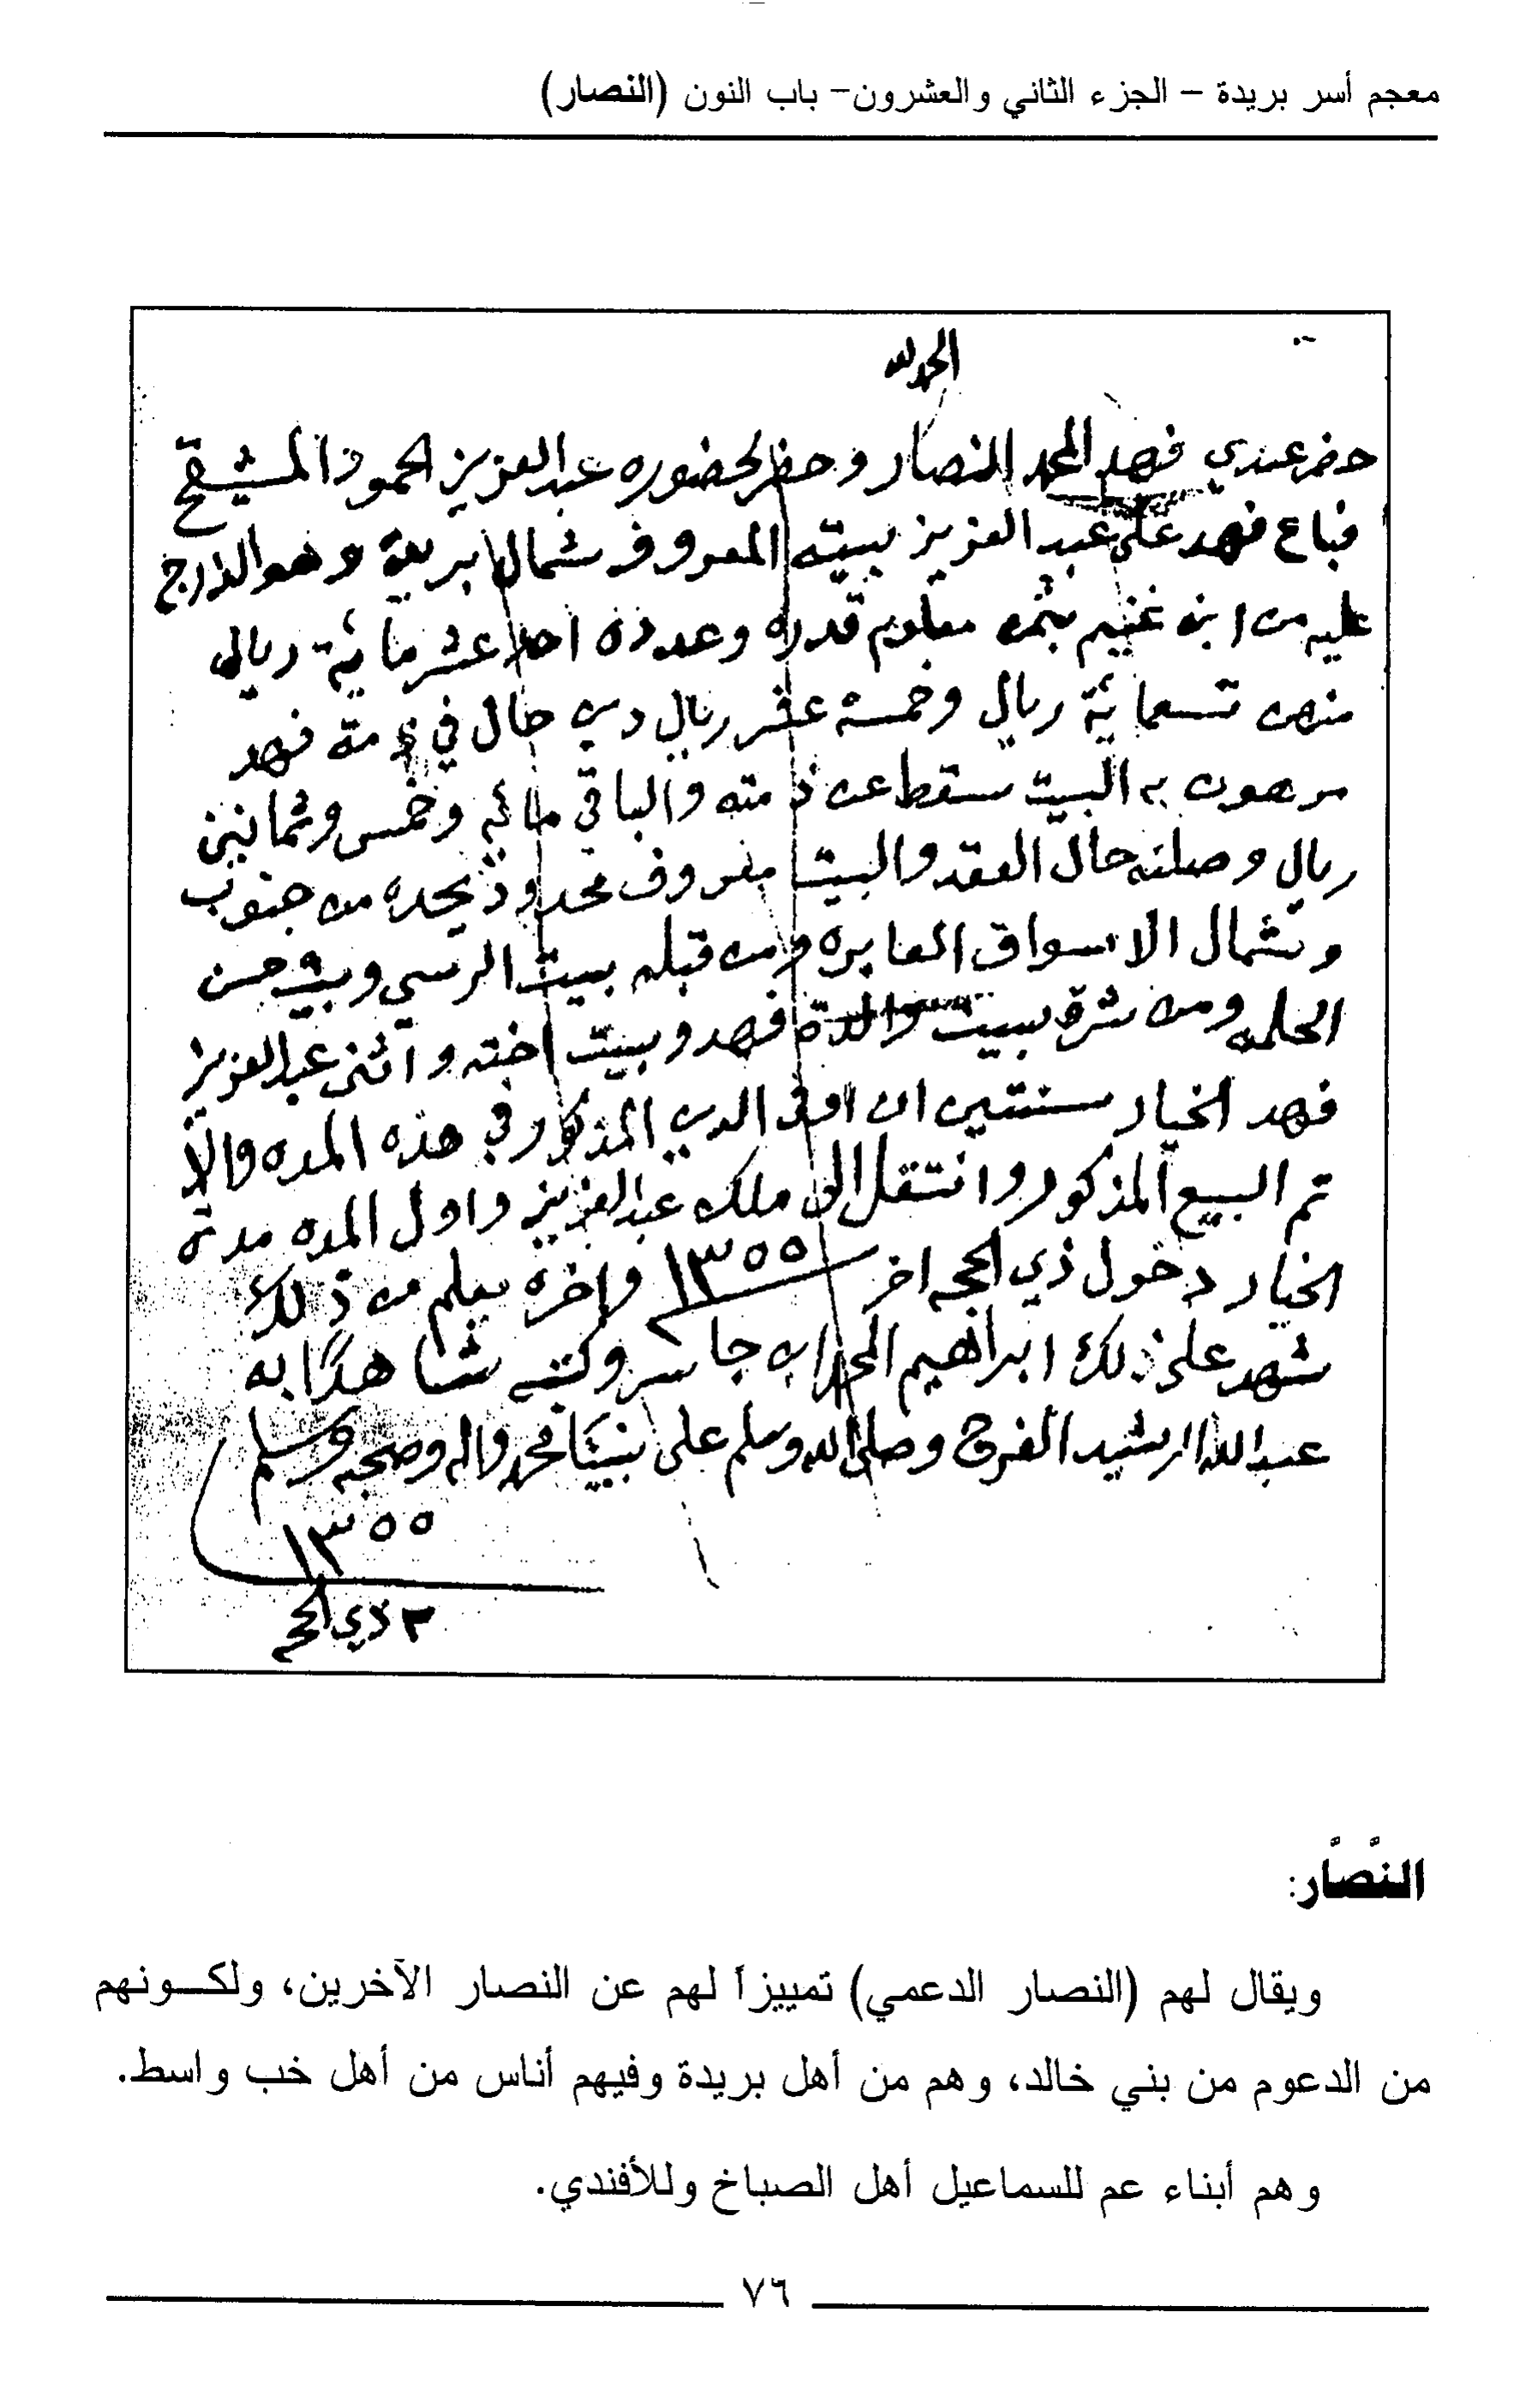 معجم أسر بريدة – الجزء الثاني والعشرون– باب النون (النصار)
الحمد لله
حضر عندي فهد المحمد النصار وحضر لحضوره عبدالعزيز الحمود المشيقح
فباع فهد على عبد العزيز بيته المعروف شمال ابريدة وهو الدارج
عليه من ابن غنيم بثمن معلوم قدره وعدده احدا عشر مائية ريال
منهن تسعمائية ريال وخمسة عشر ريال دين حال في ذمة فهد
مرهون به البيت سقط عن ذمته والباقي مائه وخمس وثمانين
ريال وصلنه حال العقد والبيت معروف محدود يحده من جنوب
وشمال الاسواق العابره ومن قبله بيت الرسي وبيت حسن
ومن شرق بيت والدة فهد وبيت اخته و عبدالعزيز
فهد الخيار سنتين ان اوفى الدين المذكور في هذه المده والا
تم البيع المذكور وانتقل الى ملك عبدالعزيز واول المده مدة
الخيار دخول ذي الحجه اخر ١٣٥٥ واخره يعلم من ذلك
شهد على ذلك ابراهيم المحمد ابن جاسر وكتبه شاهدًا به
عبدالله الرشيد الفرج وصلى الله وسلم على نبينا محمد واله وصحبه وسلم
١٣٥٥
٢ ذي الحجه
النَّصَّار:
ويقال لهم (النصار الدعمي) تمييزاً لهم عن النصار الآخرين، ولكـونهم
من الدعوم من بني خالد، وهم من أهل بريدة وفيهم أناس من أهل خب واسط.
وهم أبناء عم للسماعيل أهل الصباخ وللأفندي.
٧٦